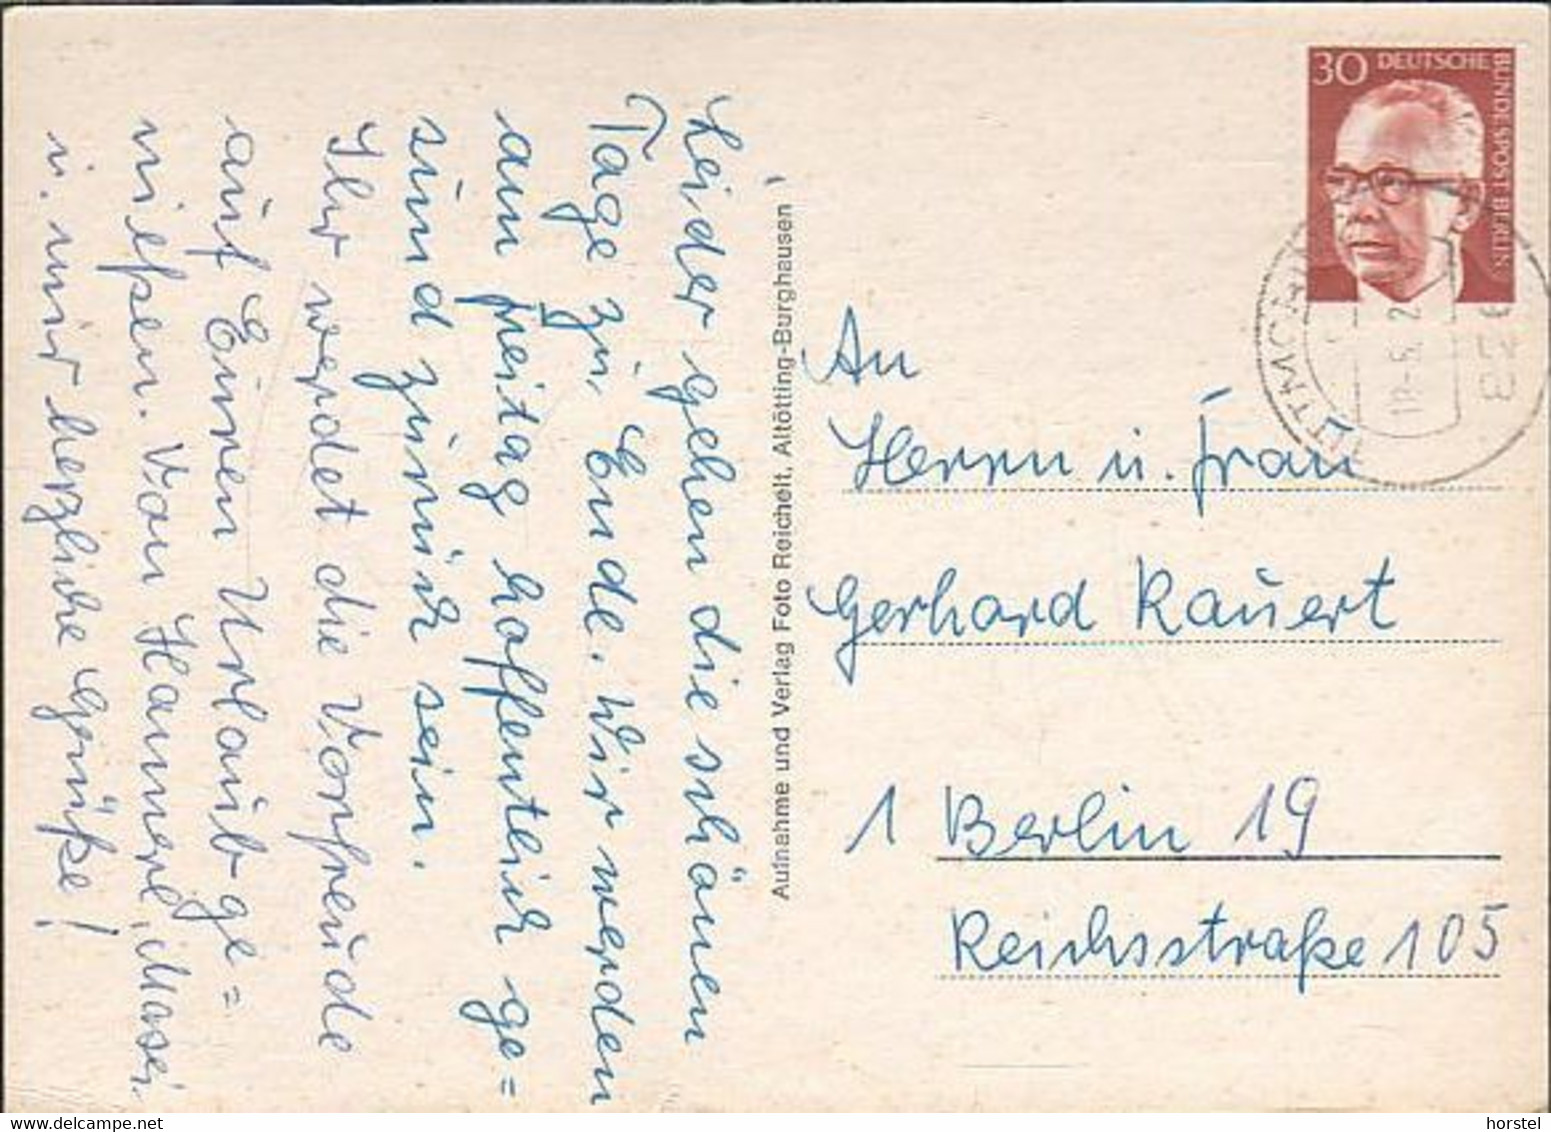 Leider gehen die schönen
Tage zu Ende. Wir werden
am Freitag hoffentlich ge=
sund zurück sein.
Ihr werdet die Vorfreude
auf Euren Urlaub ge=
nießen. Von
u. mir herzliche Grüße!
Aufnahme und Verlag Foto Reichelt, Altötting-Burghausen
30 DEUTSCHE
BUNDESPOST BERLIN
An
Herrn u. Frau
Gerhard Kauert
1 Berlin 19
Reichsstraße 105
horstel
www.delcampe.net